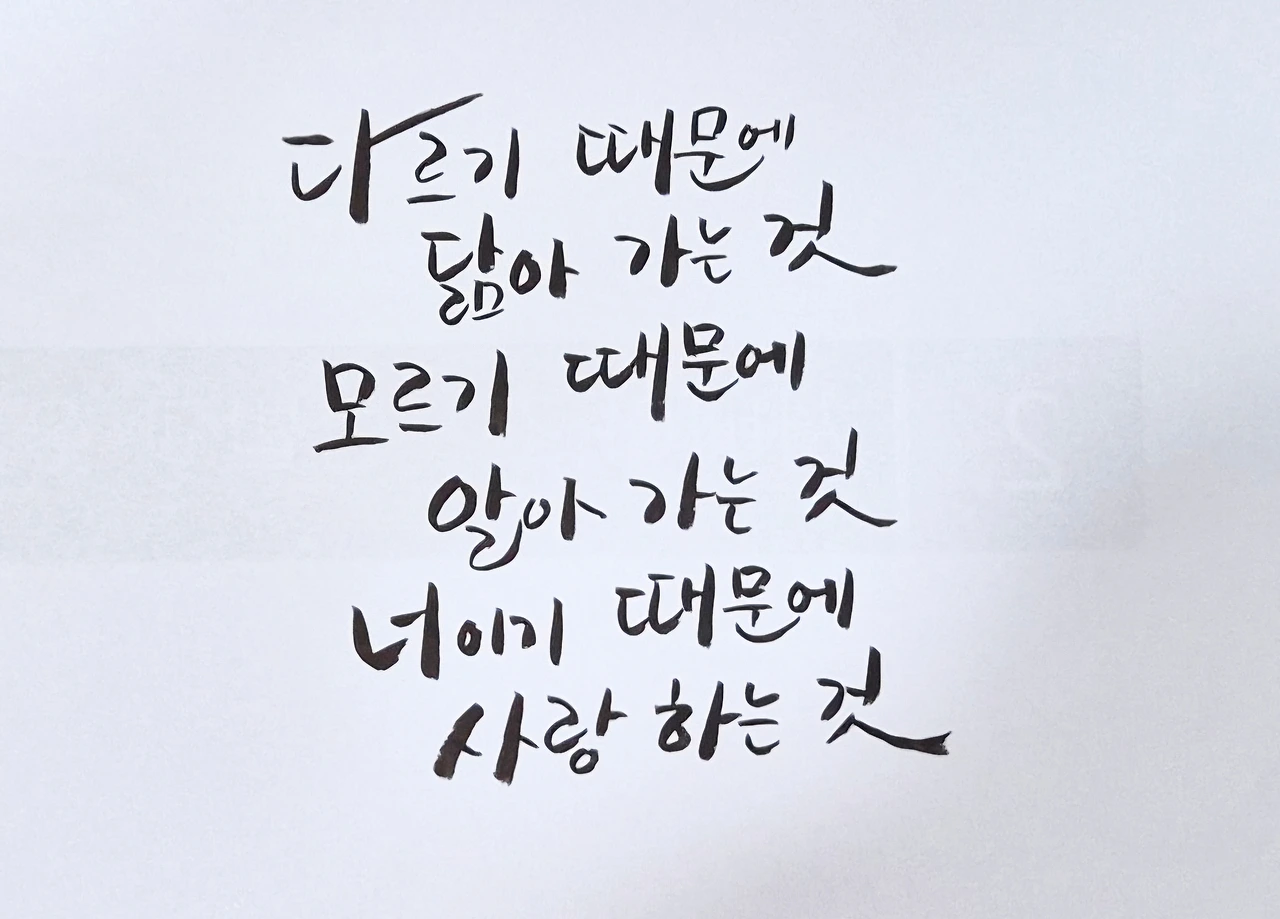 다르기 때문에
닮아 가는 것
모르기 때문에
알아 가는 것
너이기 때문에
사랑 하는 것